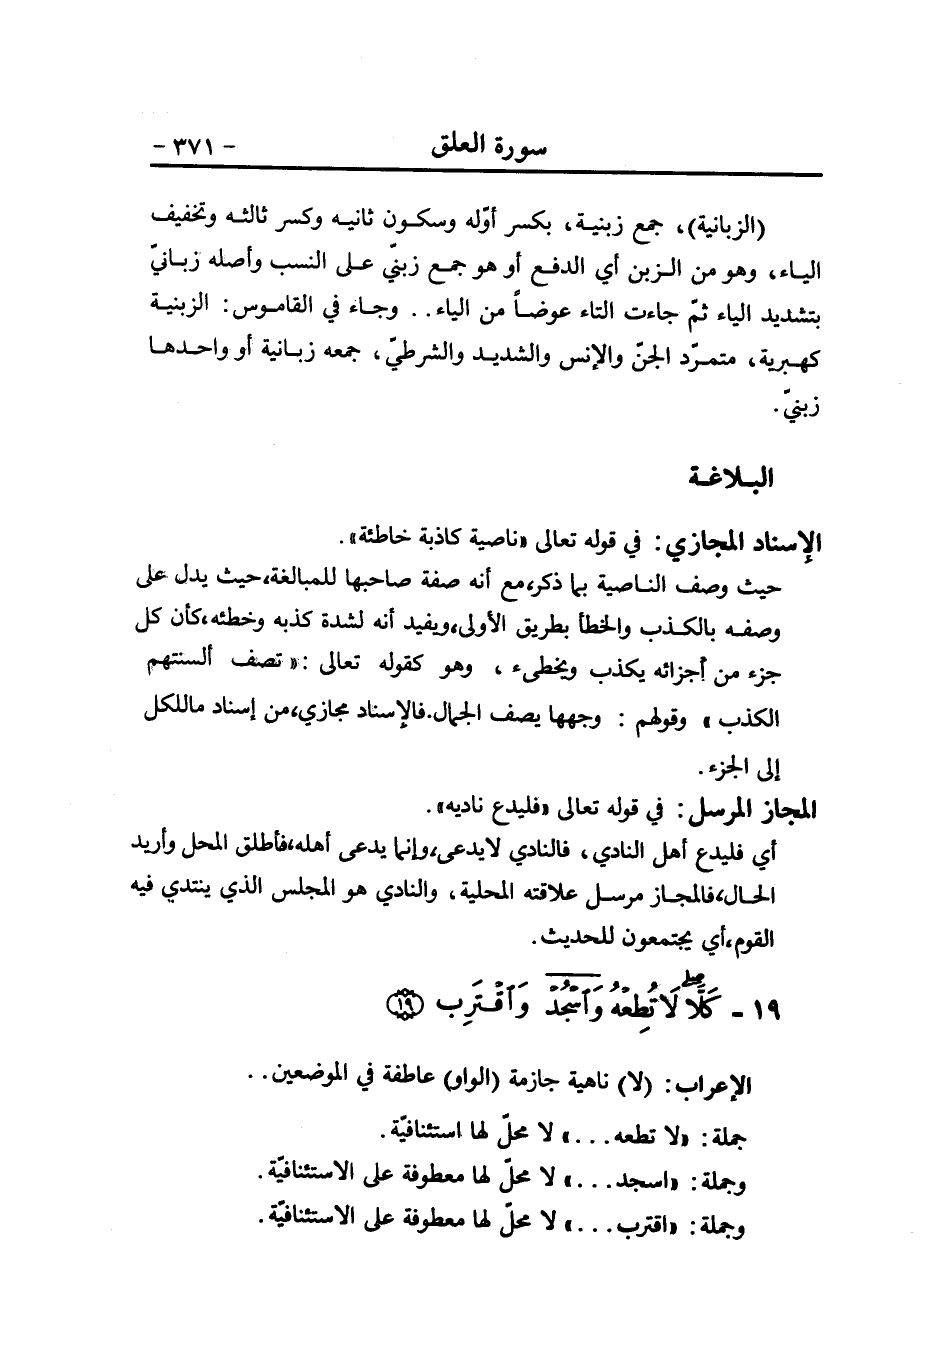 سورة العلق - ٣٧١ -
(الزبانية)، جمع زبنيـة، بكسر أوّله وسكـون ثانيـه وكسر ثالثـه وتخفيف
اليـاء، وهو من الـزبن أي الدفـع أو هو جمـع زبنيّ علـى النسب وأصله زبـانيّ
بتشديد الياء ثمّ جاءت التاء عوضـاً من الياء.. وجـاء في القامـوس: الزبنيـة
كهـبرية، متمـرّد الجنّ والإنس والشديـد والشرطيّ، جمعه زبـانية أو واحـدهـا
زبنيّ.
البـلاغـة
الإسناد المجازي: في قوله تعالى «ناصية كاذبة خاطئة».
حيث وصف النـاصية بما ذكر،مع أنه صفة صاحبها للمبالغة،حيث يدل على
وصفـه بالكـذب والخطأ بطريق الأولى،ويفيد أنه لشدة كذبه وخطئه،كأن كل
جزء من أجزائه يكذب ويخطىء ، وهو كقوله تعالى :« تصف ألسنتهم
الكذب » وقولهم : وجهها يصف الجمال.فالإسناد مجازي،من إسناد ماللكل
إلى الجزء.
المجاز المرسل: في قوله تعالى «فليدع ناديه».
أي فليدع أهل النادي، فالنادي لايدعى،وإنما يدعى أهله،فأطلق المحل وأريد
الحـال،فالمجـاز مرسـل علاقته المحلية، والنادي هو المجلس الذي ينتدي فيه
القوم،أي يجتمعون للحديث.
١٩ - كَلَّا لَا تُطِعْهُ وَٱسْجُدْ وَٱقْتَرِب ۩ ⑲
الإعراب: (لا) ناهية جازمة (الواو) عاطفة في الموضعين..
جملة: «لا تطعه...» لا محلّ لها استئنافيّة.
وجملة: «اسجد...» لا محلّ لها معطوفة على الاستئنافيّة.
وجملة: «اقترب...» لا محلّ لها معطوفة على الاستئنافيّة.